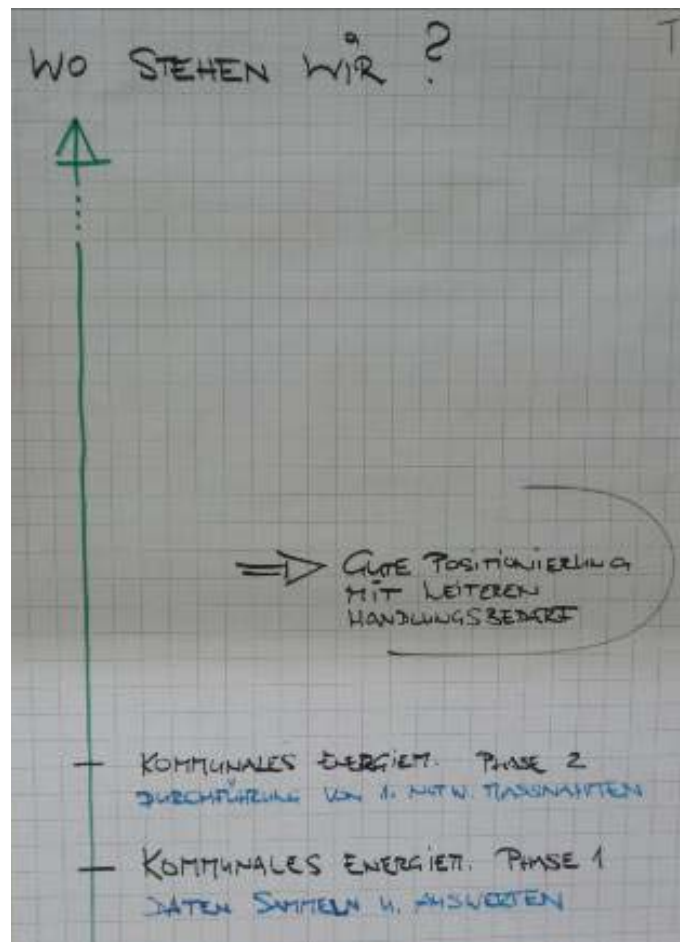 WO STEHEN WIR ?
T
⇒ GUTE POSITIONIERUNG
MIT WEITEREN
HANDLUNGSBEDARF
KOMMUNALES ENERGIEM. PHASE 2
DURCHFÜHRUNG VON 1. NOTW. MASSNAHMEN
KOMMUNALES ENERGIEM. PHASE 1
DATEN SAMMELN U. AUSWERTEN